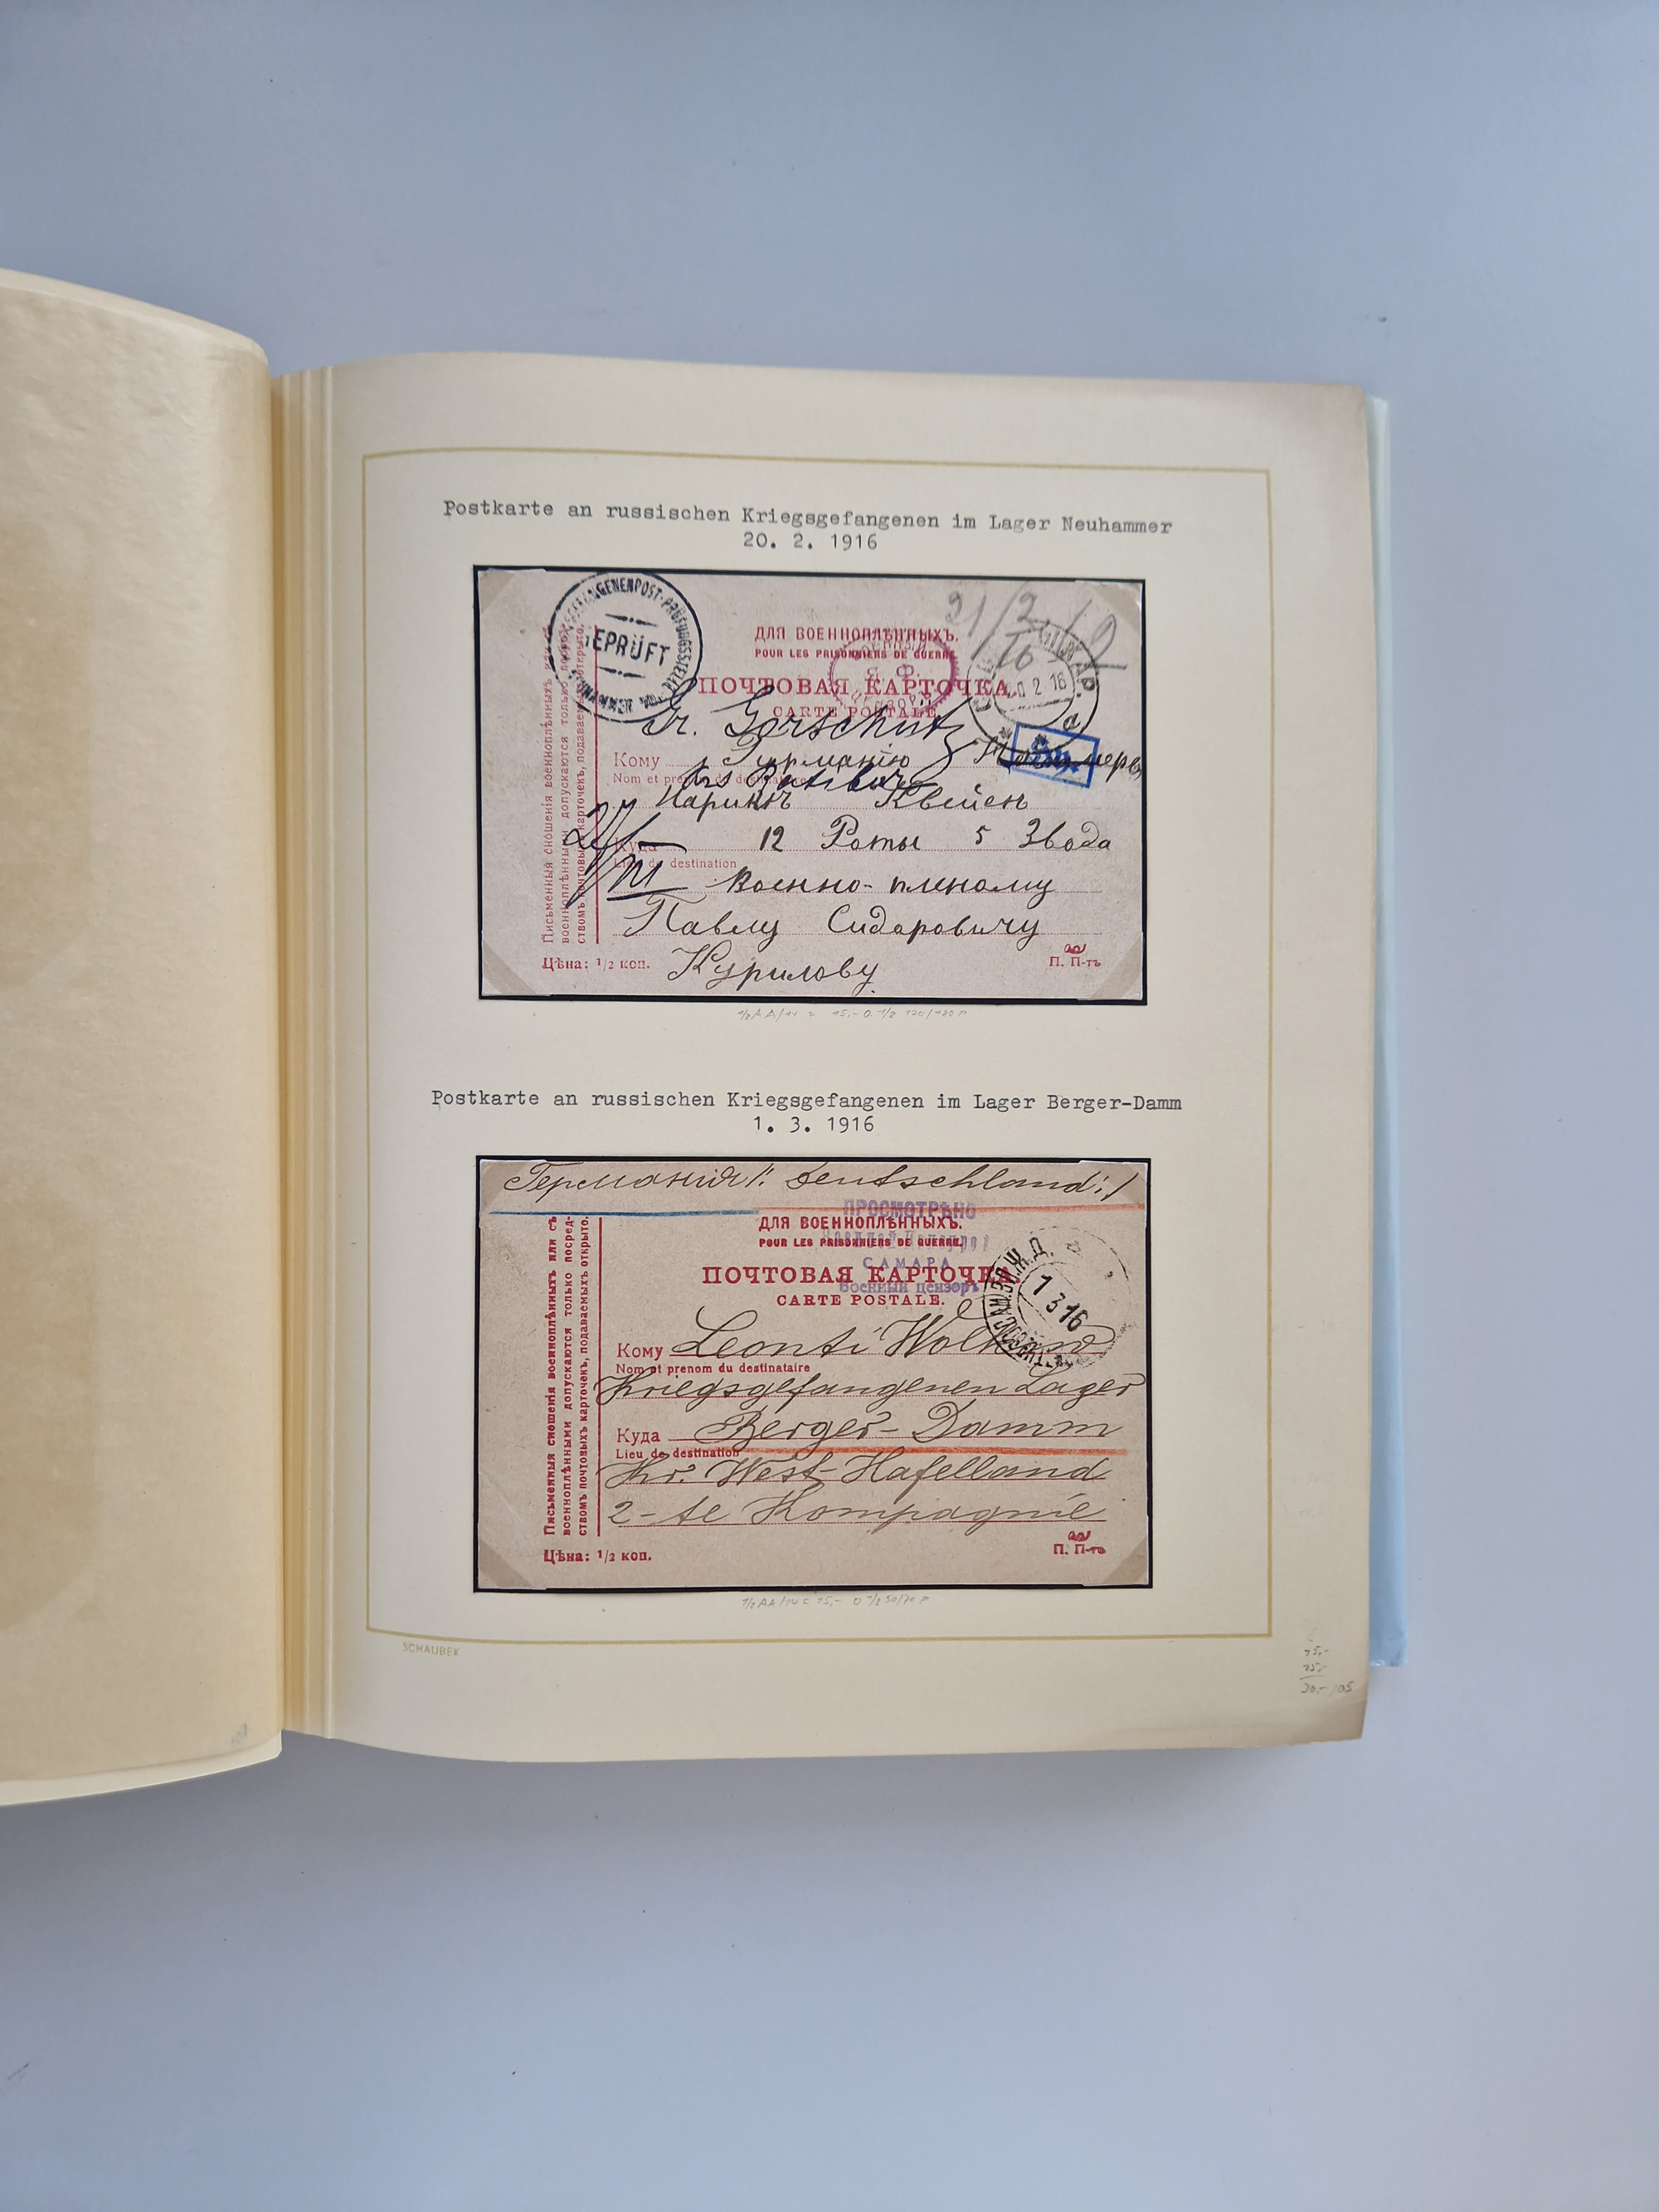 Postkarte an russischen Kriegsgefangenen im Lager Neuhammer
20. 2. 1916
GEPRÜFT
ДЛЯ ВОЕННОПЛѢННЫХЪ.
POUR LES PRISONNIERS DE GUERRE
ПОЧТОВАЯ КАРТОЧКА
CARTE POSTALE.
2 16
Gr. Gorschütz
Кому
Nom et prenom du destinataire
12 Роты 5 Звода
Куда
Lieu de destination
Военно-пленому
Павлу Сидоровичу
Курилову
Письменныя сношенія военноплѣнныхъ или съ
военноплѣнными допускаются только посред-
ствомъ почтовыхъ карточекъ, подаваемыхъ открыто.
Цѣна: 1/2 коп.
П. П-тъ
Postkarte an russischen Kriegsgefangenen im Lager Berger-Damm
1. 3. 1916
Германія /: Deutschland :/
ПРОСМОТРѢНО
ДЛЯ ВОЕННОПЛѢННЫХЪ.
POUR LES PRISONNIERS DE GUERRE.
САМАРА
Военный цензоръ
ПОЧТОВАЯ КАРТОЧКА
CARTE POSTALE.
1 3 16
Кому Leonti Wolkow
Nom et prenom du destinataire
Kriegsgefangenen Lager
Куда Berger-Damm
Lieu de destination
Kr. West-Hafelland
2-te Kompagnie
Письменныя сношенія военноплѣнныхъ или съ
военноплѣнными допускаются только посред-
ствомъ почтовыхъ карточекъ, подаваемыхъ открыто.
Цѣна: 1/2 коп.
П. П-тъ
1/2 AA/14 = 15,- 0 1/2 50/70 P
SCHAUBEK
15,-
15,-
30,- /05